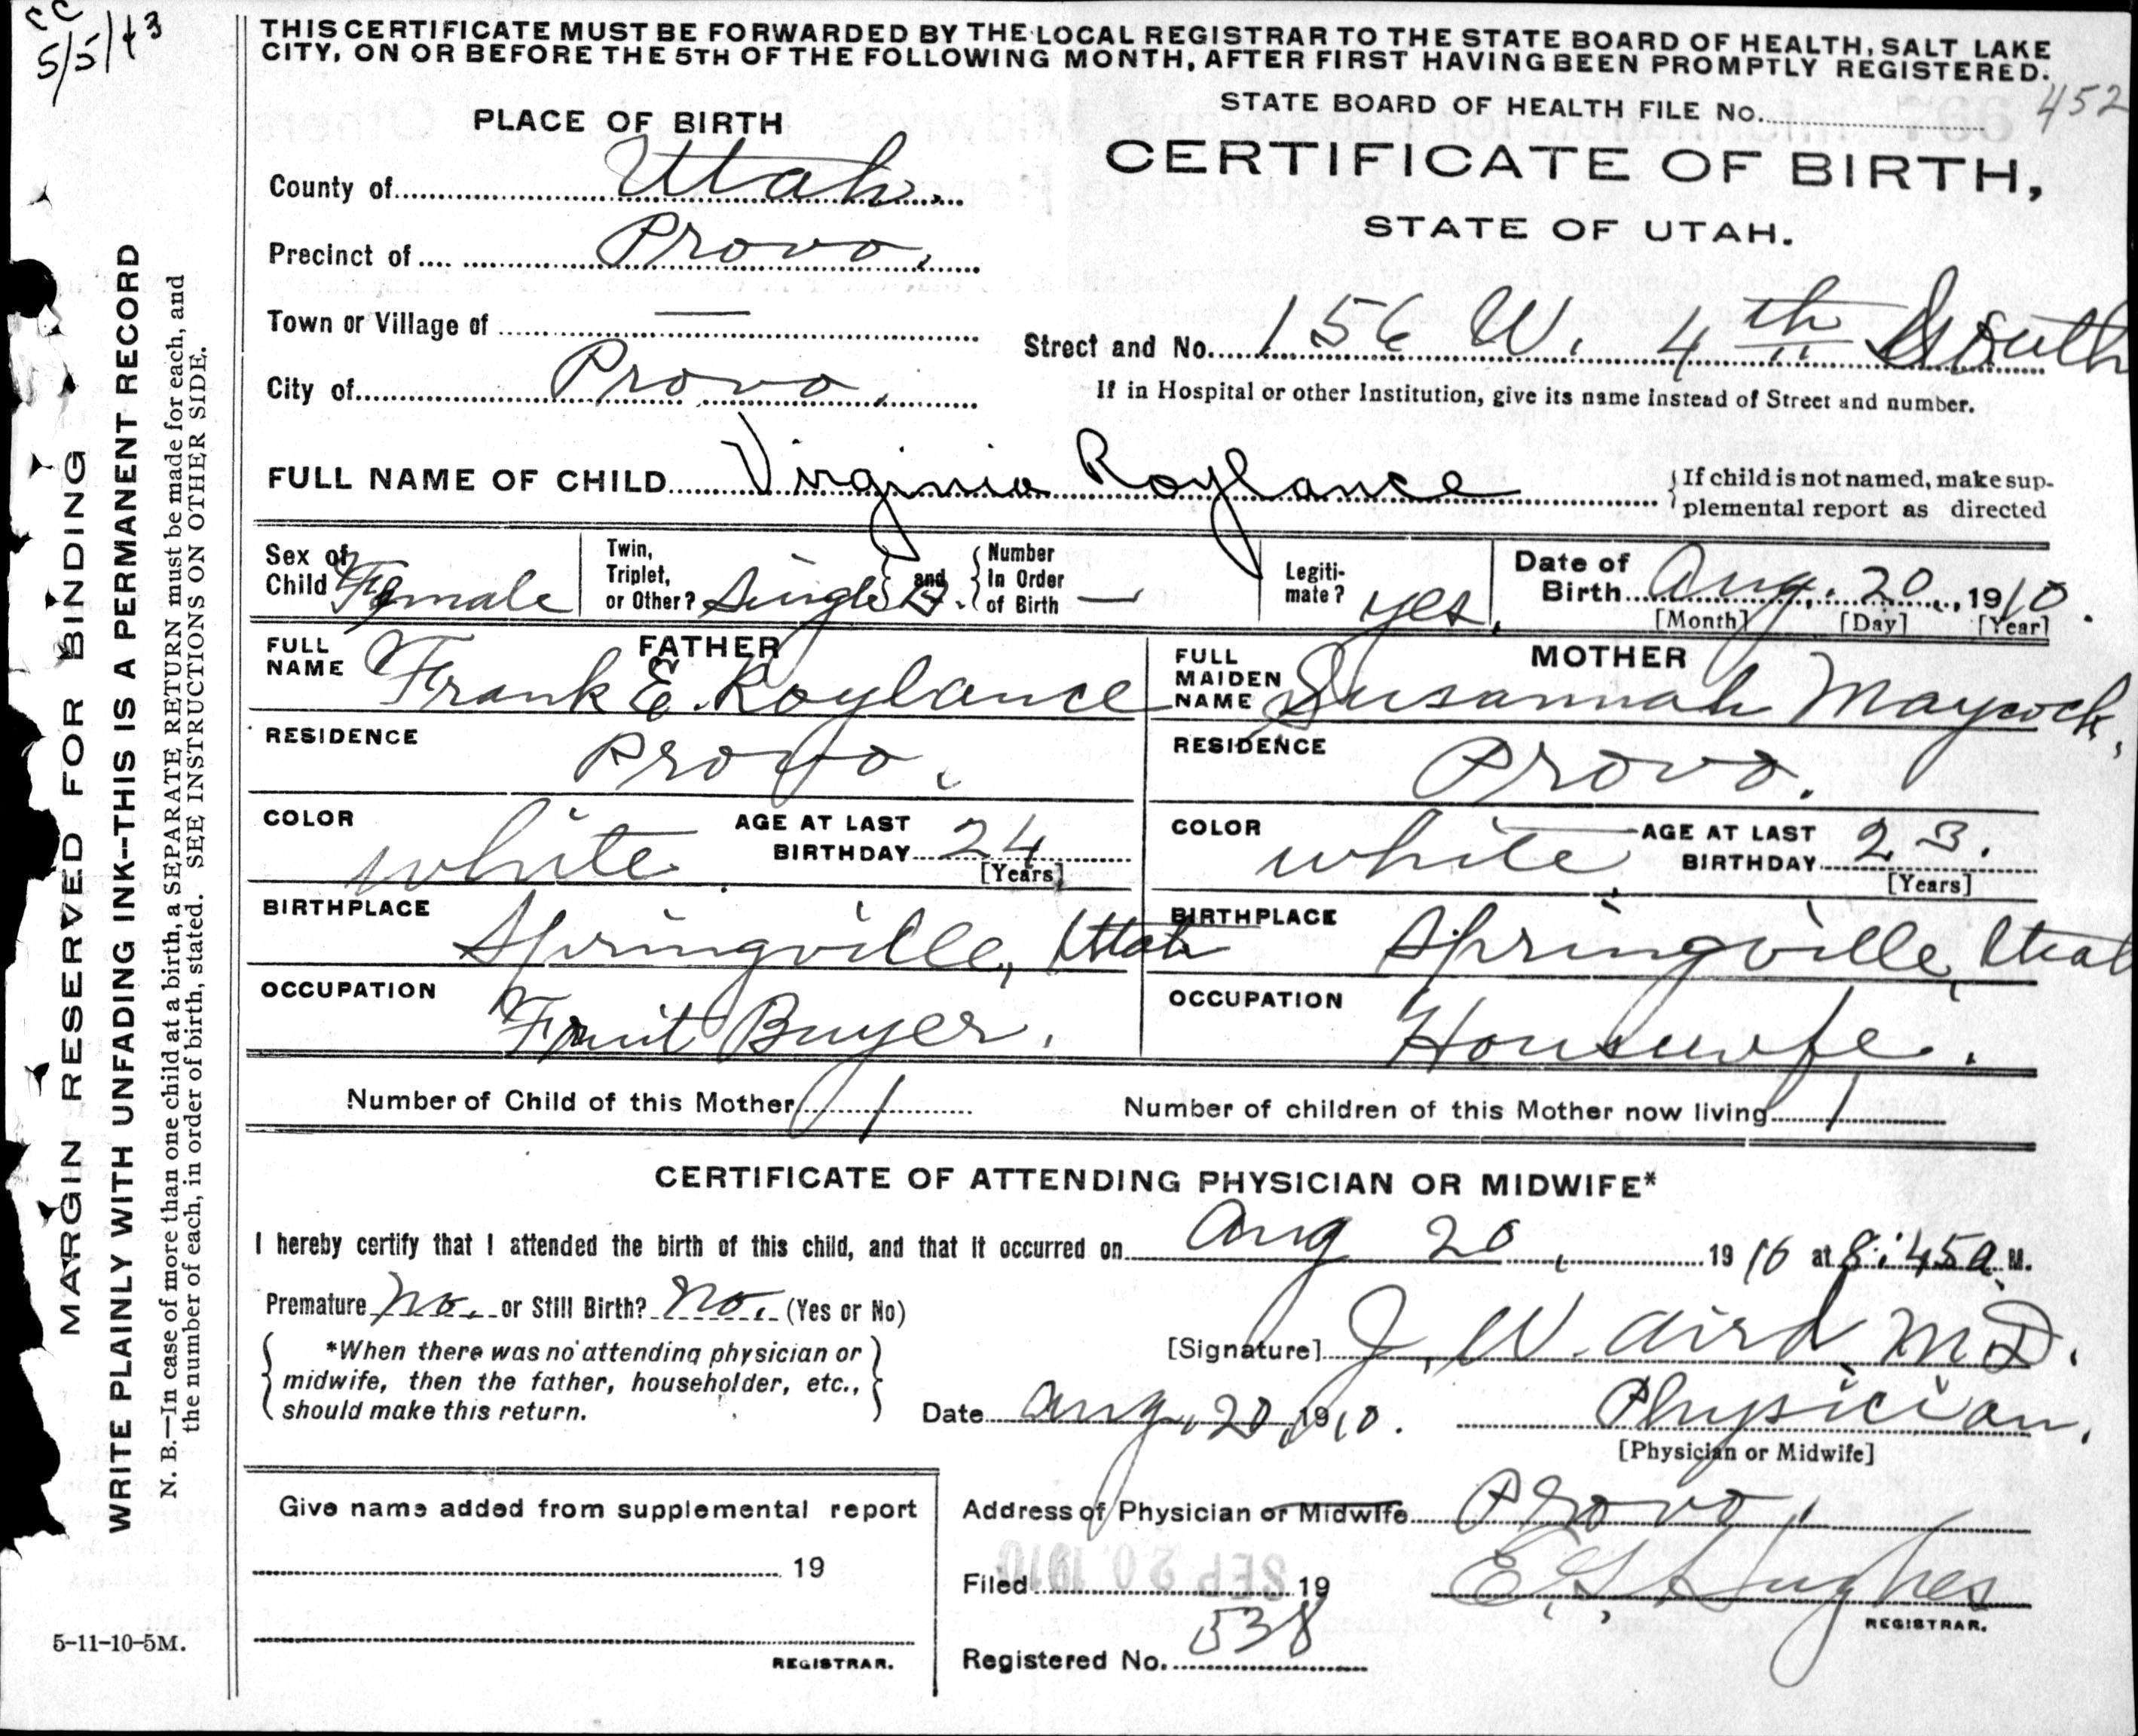 cc
5/5/43
THIS CERTIFICATE MUST BE FORWARDED BY THE LOCAL REGISTRAR TO THE STATE BOARD OF HEALTH, SALT LAKE
CITY, ON OR BEFORE THE 5TH OF THE FOLLOWING MONTH, AFTER FIRST HAVING BEEN PROMPTLY REGISTERED.
STATE BOARD OF HEALTH FILE No. 452
PLACE OF BIRTH
CERTIFICATE OF BIRTH,
STATE OF UTAH.
County of Utah.
Precinct of Provo.
Town or Village of —
Street and No. 156 W. 4th South
City of Provo.
If in Hospital or other Institution, give its name instead of Street and number.
FULL NAME OF CHILD Virginia Roylance
If child is not named, make sup-
plemental report as directed
Sex of Child Female
Twin, Triplet, or Other? Single and Number In Order of Birth —
Legiti-mate? yes.
Date of Birth Aug. 20, 1910.
[Month] [Day] [Year]
FATHER
FULL NAME Frank E. Roylance
MOTHER
FULL MAIDEN NAME Susannah Maycock.
RESIDENCE Provo.
RESIDENCE Provo.
COLOR white. AGE AT LAST BIRTHDAY 24 [Years]
COLOR white. AGE AT LAST BIRTHDAY 23. [Years]
BIRTHPLACE Springville, Utah
BIRTHPLACE Springville, Utah
OCCUPATION Fruit Buyer.
OCCUPATION Housewife.
Number of Child of this Mother 1
Number of children of this Mother now living 1
CERTIFICATE OF ATTENDING PHYSICIAN OR MIDWIFE*
I hereby certify that I attended the birth of this child, and that it occurred on Aug 20, 1910 at 8:45 a. M.
Premature no. or Still Birth? no. (Yes or No)
*When there was no attending physician or
midwife, then the father, householder, etc.,
should make this return.
[Signature] J. W. Aird M.D.
Date Aug. 20, 1910. Physician.
[Physician or Midwife]
Give name added from supplemental report
19
REGISTRAR.
Address of Physician or Midwife Provo.
Filed SEP 20 1910 19 E. G. Hughes
REGISTRAR.
Registered No. 538
MARGIN RESERVED FOR BINDING
WRITE PLAINLY WITH UNFADING INK--THIS IS A PERMANENT RECORD
N. B.—In case of more than one child at a birth, a SEPARATE RETURN must be made for each, and
the number of each, in order of birth, stated. SEE INSTRUCTIONS ON OTHER SIDE.
5-11-10-5M.